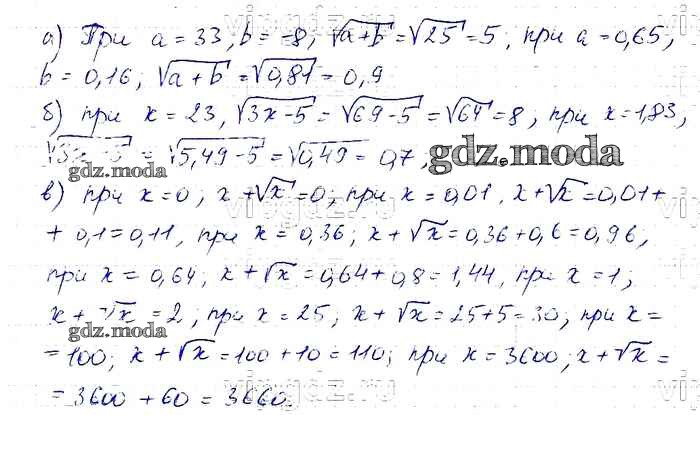 а) При a = 33, b = -8, √(a+b) = √25 = 5; при a = 0,65;
b = 0,16; √(a+b) = √0,81 = 0,9
б) при x = 23, √(3x-5) = √(69-5) = √64 = 8, при x = 1,83,
√(3x-5) = √(5,49-5) = √0,49 = 0,7, gdz.moda
в) при x = 0; x + √x = 0; при x = 0,01, x + √x = 0,01 +
+ 0,1 = 0,11, при x = 0,36; x + √x = 0,36 + 0,6 = 0,96,
при x = 0,64; x + √x = 0,64 + 0,8 = 1,44, при x = 1;
x + √x = 2; при x = 25, x + √x = 25 + 5 = 30; при x =
gdz.moda
= 100; x + √x = 100 + 10 = 110; при x = 3600; x + √x =
= 3600 + 60 = 3660.